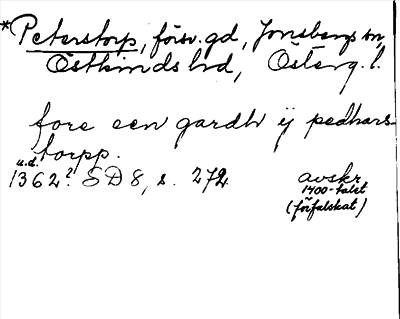 *Peterstorp, försv. gd, Jonsbergs sn,
Östkinds hd, Österg. l.
fore een gardh ij pedhars
torpp.
u.d.
1362? SD 8, s. 272
avskr.
1400-talet
(förfalskat)